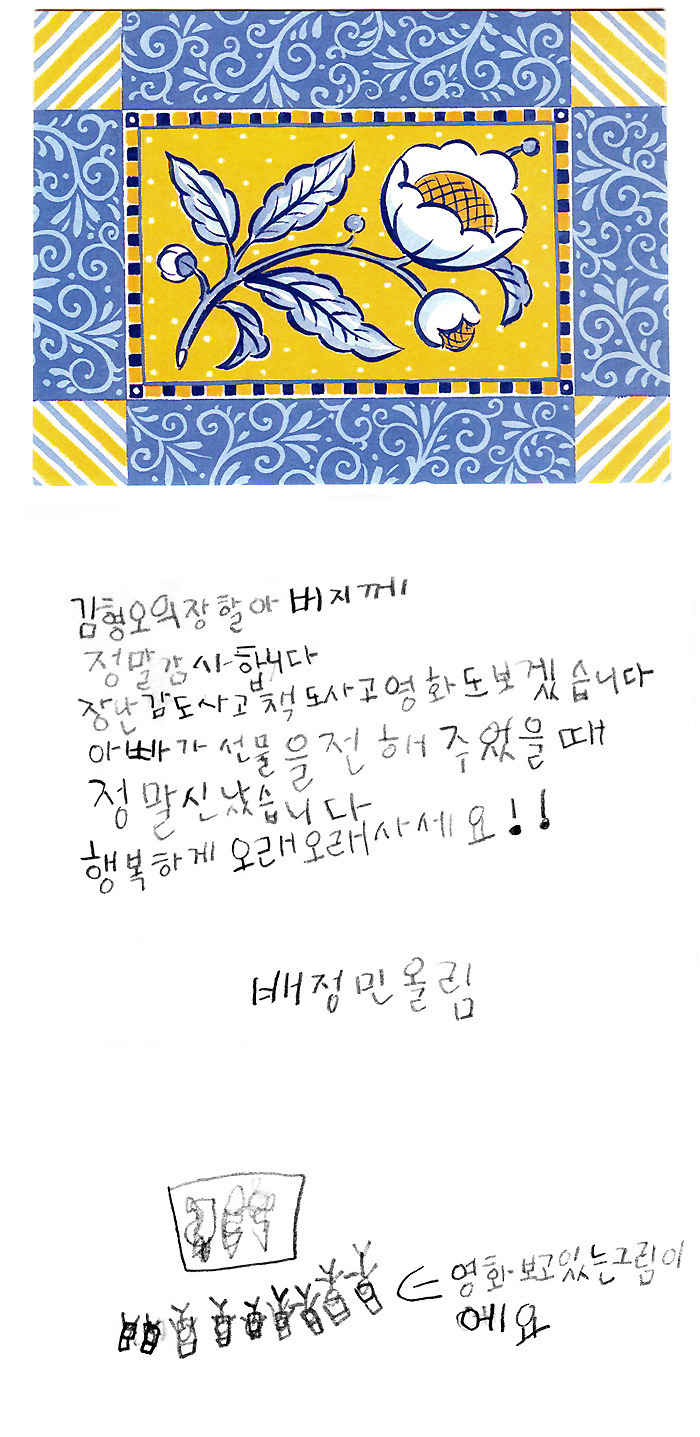 김형오의장할아버지께
정말감사합니다
장난감도사고책도사고영화도보겠습니다
아빠가선물을전해주었을때
정말신났습니다
행복하게오래오래사세요!!
배정민올림
영화보고있는그림이
에요